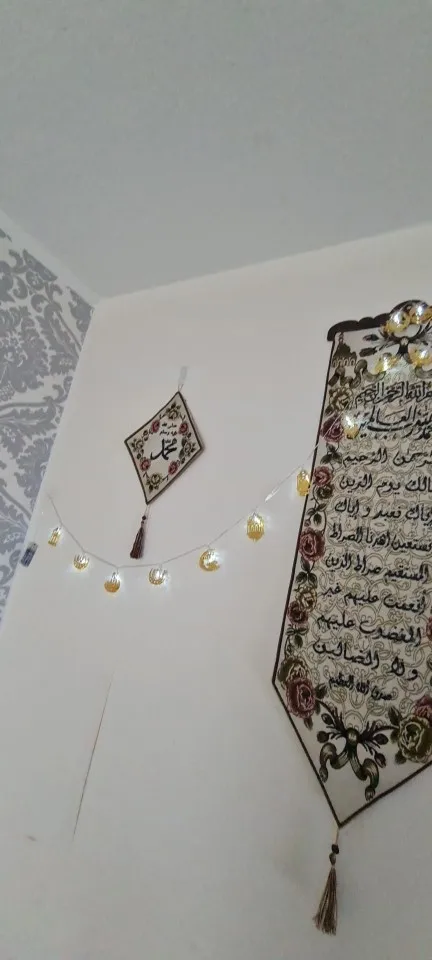 صلى الله
عليه وسلم
محمد
بسم الله الرحمن الرحيم
العالمين
الرحمن الرحيم
مالك يوم الدين
إياك نعبد و إياك
نستعين اهدنا الصراط
المستقيم صراط الذين
أنعمت عليهم غير
المغضوب عليهم
ولا الضالين
صدق الله العظيم